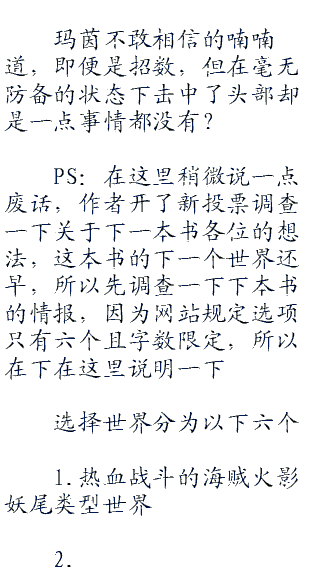 玛茵不敢相信的喃喃
道，即便是招数，但在毫无
防备的状态下击中了头部却
是一点事情都没有？
PS：在这里稍微说一点
废话，作者开了新投票调查
一下关于下一本书各位的想
法，这本书的下一个世界还
早，所以先调查一下下本书
的情报，因为网站规定选项
只有六个且字数限定，所以
在下在这里说明一下
选择世界分为以下六个
1.热血战斗的海贼火影
妖尾类型世界
2.